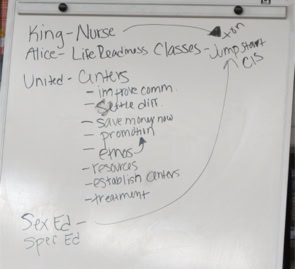 King - Nurse
Alice - Life Readiness Classes - jump start
CIS
United - Centers
- improve comm.
- Settle diff.
- save money now
- promotion
- emos
- resources
- establish centers
- treatment
Sex Ed -
Spec Ed